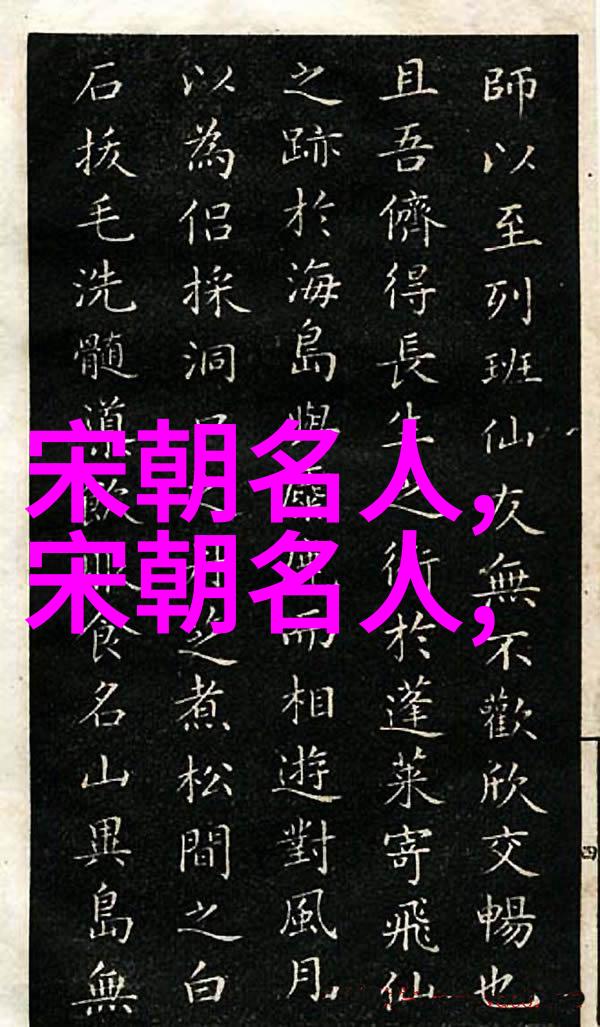 師以至列班仙友無不歡欣交暢也
且吾儕得長生之術於蓬萊寄飛仙
之跡於海島與而相遊對風月
以為侶採洞之煮松間之白
石拔毛洗髓飲食名山異島無
宋朝名人,
宋朝名人,
四